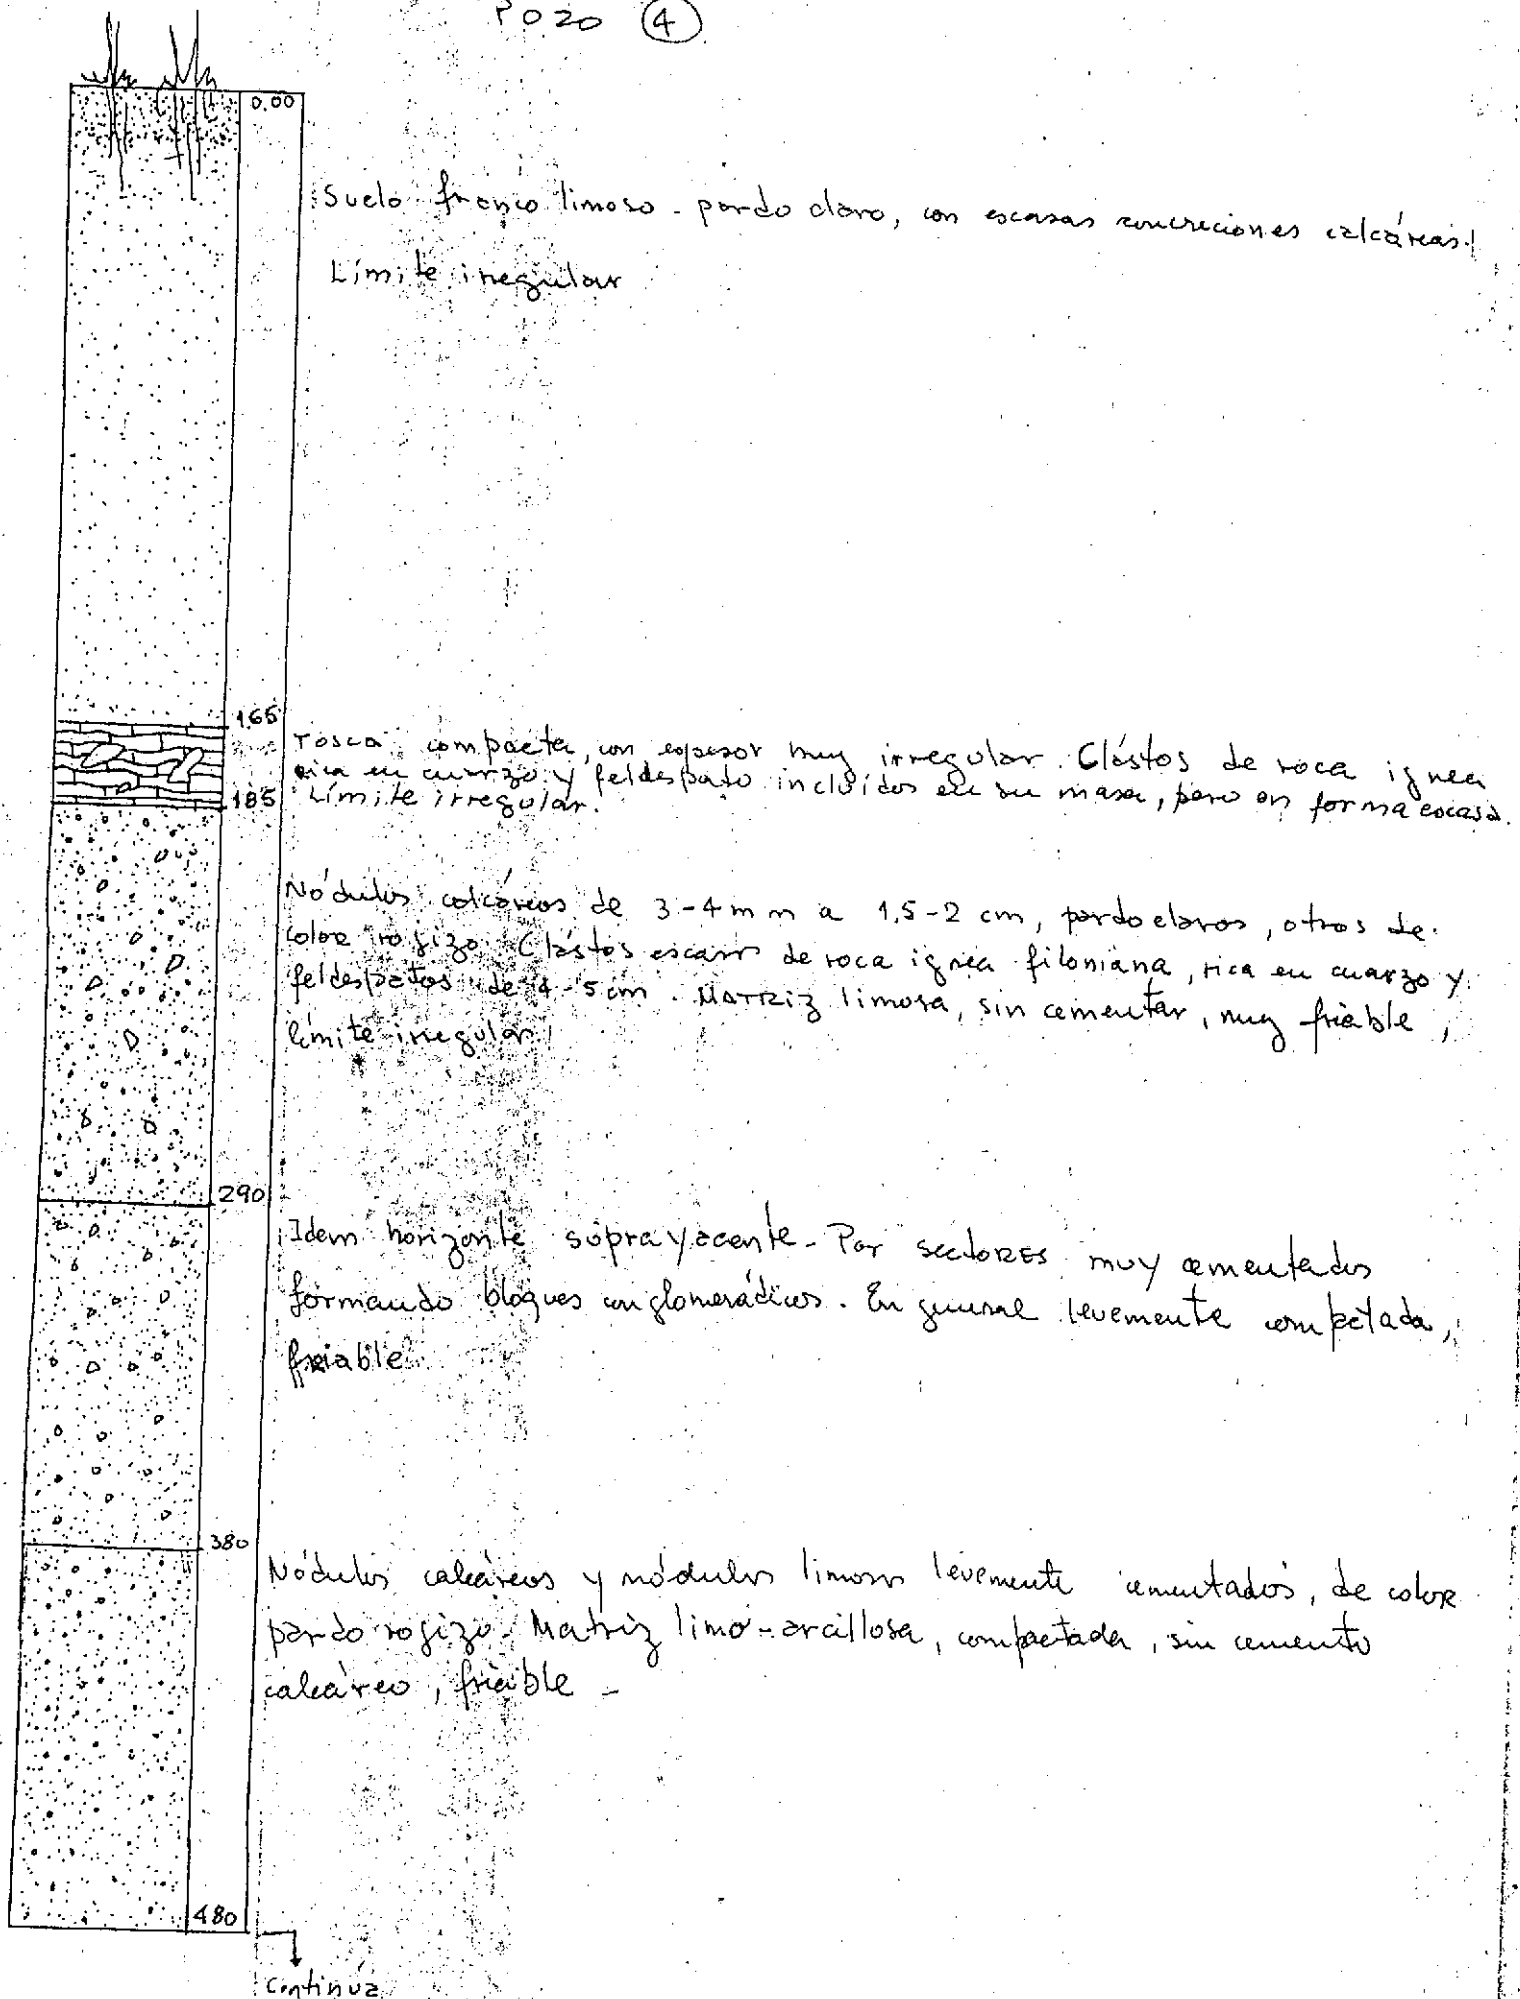 POZO 4
0.00
Suelo franco limoso - pardo claro, con escasas concreciones calcáreas.
Límite irregular
165
Tosca compacta, con espesor muy irregular. Clástos de roca ignea
rica en cuarzo y feldespato incluídos en su masa, pero en forma escasa.
185 Límite irregular.
Nódulos calcáreos de 3-4 mm a 1,5-2 cm, pardo claros, otros de
color rogizo. Clástos escasos de roca ignea filoniána, rica en cuarzo y
feldespatos de 4-5 cm. Matriz limosa, sin cementar, muy friable,
límite irregular
290
Idem horizonte soprayacente - Por sectores muy cementados
formando bloques conglomerádicos. En general levemente compactada,
friable
380
Nódulos calcáreos y nódulos limosos levemente cementados, de color
pardo rogizo - Matriz limo-arcillosa, compactada, sin cemento
calcáreo, friáble -
480
Continúa